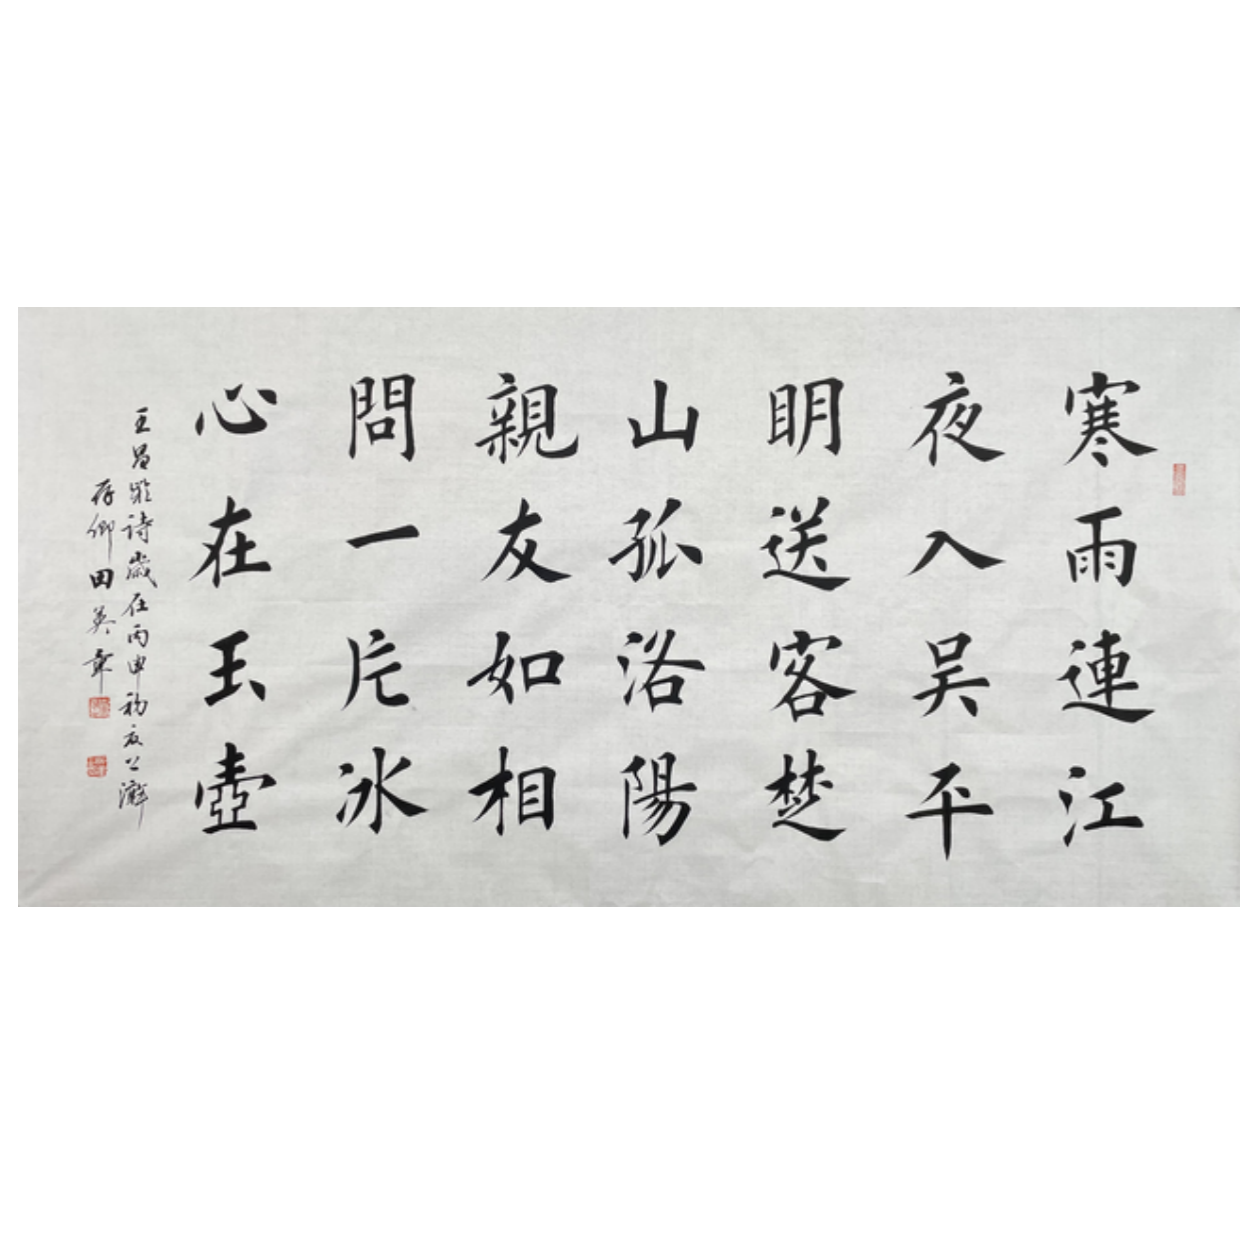 寒雨連江
夜入吴平
明送客楚
山孤洛陽
親友如相
問一片冰
心在玉壺
王昌齡詩歲在丙申初夏
存卿田英章